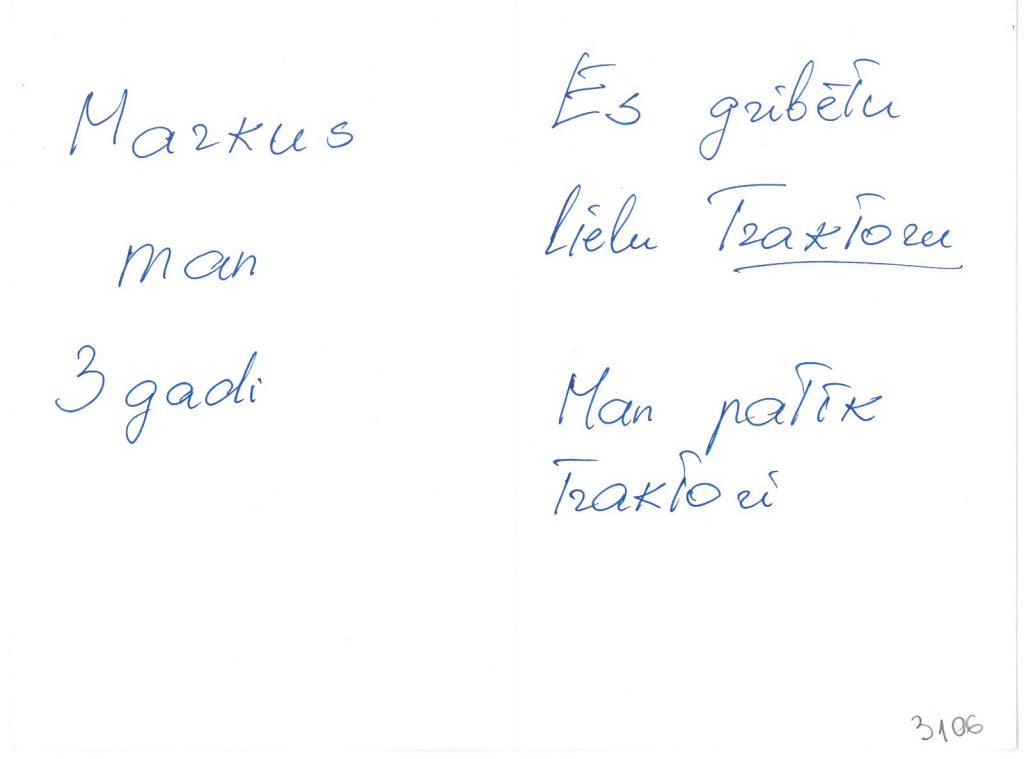 Markus
man
3 gadi
Es gribētu
lielu Traktoru
Man patīk
Traktori
3106